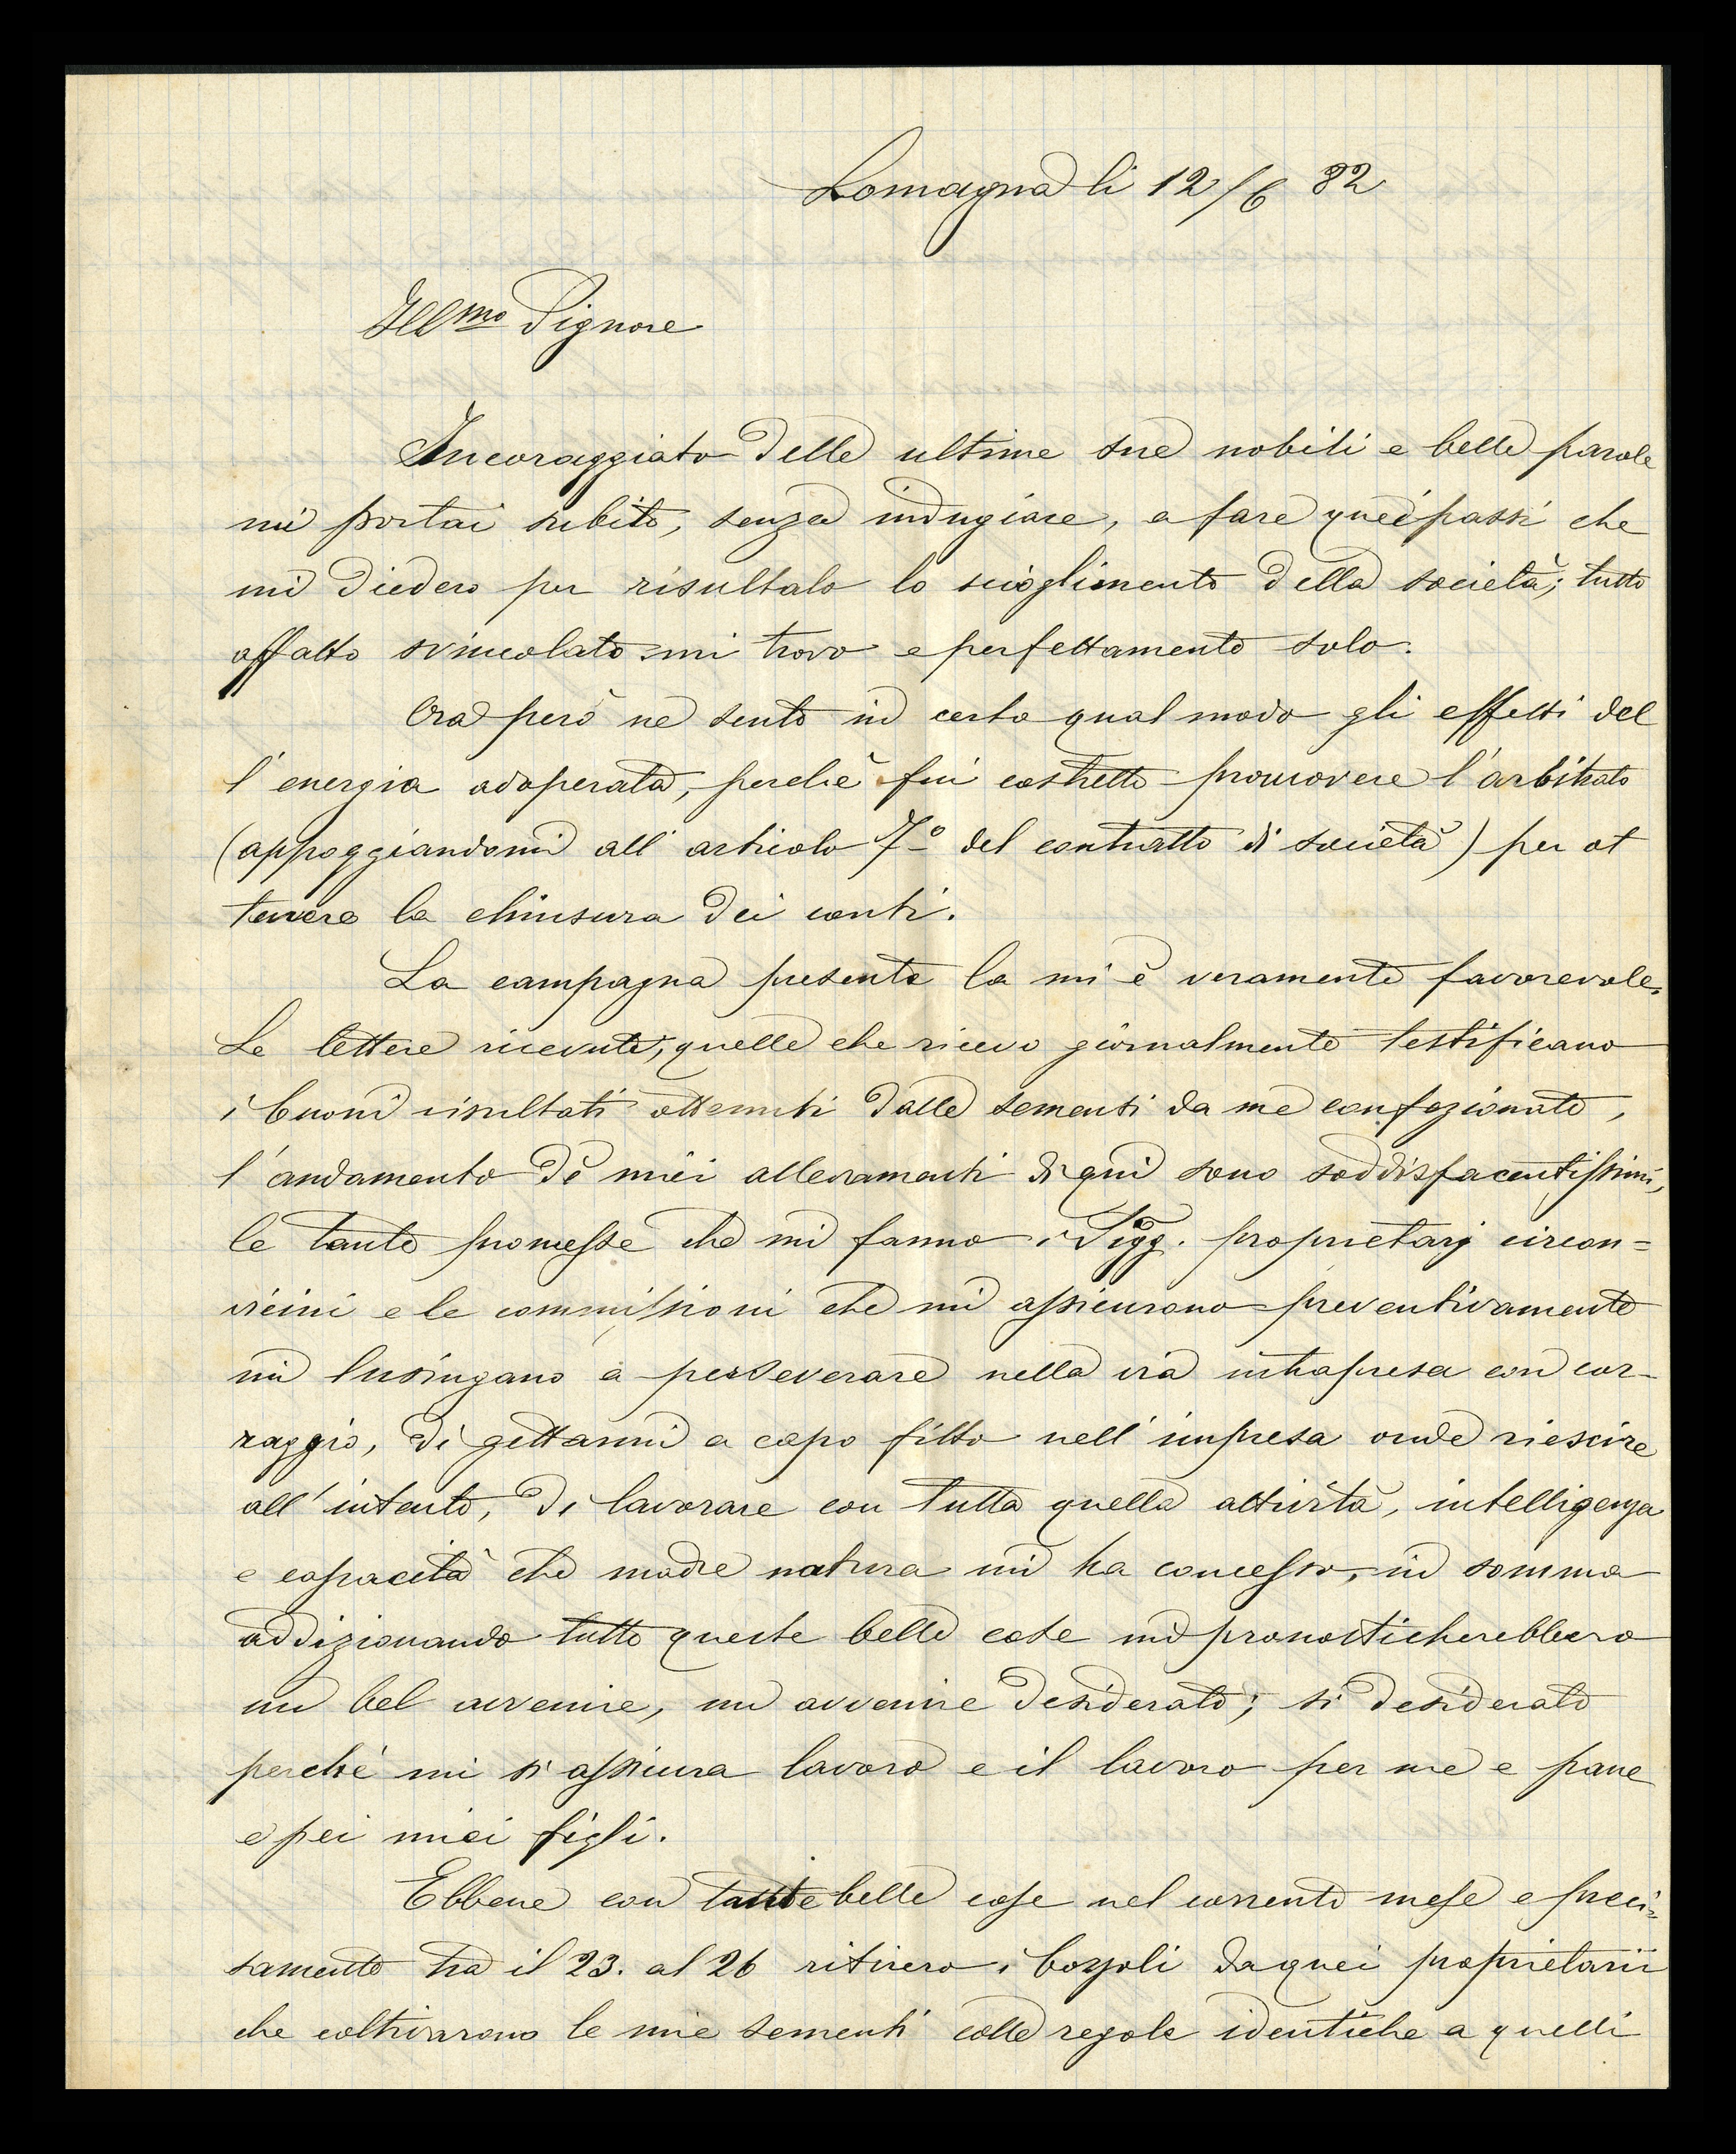 Lomagna li 12/6 82
Illmo Signore
Incoraggiato delle ultime sue nobili e belle parole
mi portai subito, senza indugiare, a fare quei passi che
mi diedero per risultato lo scioglimento della società; tutto
affatto svincolato mi trovo e perfettamente solo.
Ora però ne sento in certo qual modo gli effetti del
l'energia adoperata, perchè fui costretto promovere l'arbitrato
(appoggiandomi all'articolo 7º del contratto di società) per ot
tenere la chiusura dei conti.
La campagna presente la mi è veramente favorevole.
Le lettere ricevute, quelle che ricevo giornalmente testificano
i buoni risultati ottenuti dalle sementi da me confezionate,
l'andamento de miei allevamenti di qui sono soddisfacentissimi,
le tante promesse che mi fanno i Sigg. proprietarj circon=
vicini e le commissioni che mi assicurono preventivamente
mi lusingano a perseverare nella via intrapresa con cor-
raggio, di gettarmi a capo fitto nell'impresa onde riescire
all'intento, di lavorare con tutta quella attività, intelligenza
e capacità che madre natura mi ha concesso, in somma
addizionando tutte queste belle cose mi pronosticherebbero
un bel avvenire, un avvenire desiderato; si desiderato
perchè mi si assicura lavoro e il lavoro per me e pane
e pei miei figli.
Ebbene con tante belle cose nel corrente mese e preci=
samente tra il 23. al 26 ritirero i bozzoli da quei proprietarii
che coltivarono le mie sementi colle regole identiche a quelli